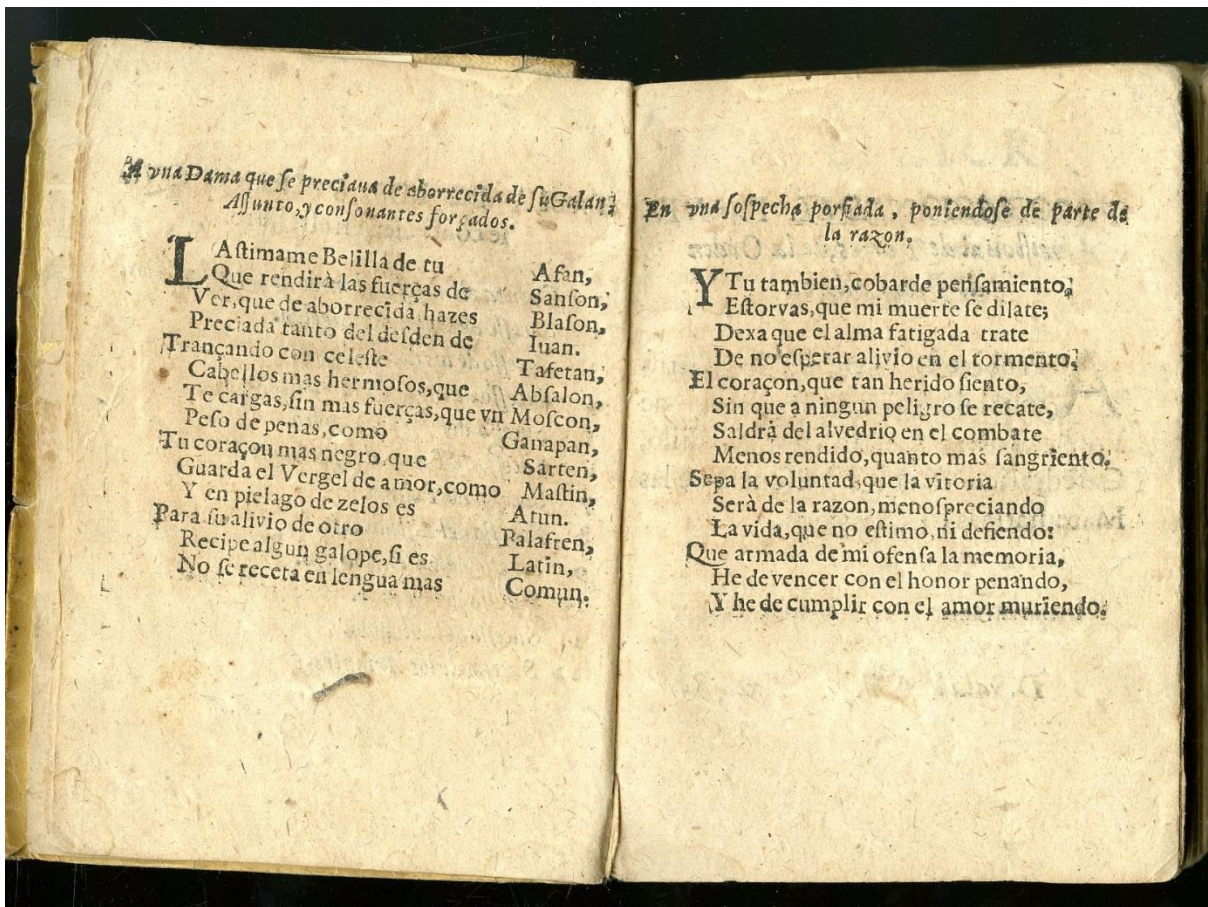 A vna Dama que ſe preciaua de aborrecida de ſu Galan;
Aſſunto, y conſonantes forçados.
LAſtimame Belilla de tu Afan,
Que rendirà las fuerças de Sanſon,
Ver, que de aborrecida hazes Blaſon,
Preciada tanto del deſden de Iuan.
Trançando con celeſte Tafetan,
Cabellos mas hermoſos, que Abſalon,
Te cargas, ſin mas fuerças, que vn Moſcon,
Peſo de penas, como Ganapan,
Tu coraçon mas negro, que Sarten,
Guarda el Vergel de amor, como Maſtin,
Y en pielago de zelos es Atun.
Para ſu alivio de otro Palafren,
Recipe algun galope, ſi es Latin,
No ſe receta en lengua mas Comun.
En vna ſoſpecha porfiada, poniendoſe de parte de
la razon.
Y Tu tambien, cobarde penſamiento,
Eſtorvas, que mi muerte ſe dilate;
Dexa que el alma fatigada trate
De no eſperar alivio en el tormento,
El coraçon, que tan herido ſiento,
Sin que a ningun peligro ſe recate,
Saldrà del alvedrio en el combate
Menos rendido, quanto mas ſangriento.
Sepa la voluntad, que la vitoria
Serà de la razon, menoſpreciando
La vida, que no eſtimo, ni defiendo:
Que armada de mi ofenſa la memoria,
He de vencer con el honor penando,
Y he de cumplir con el amor muriendo.